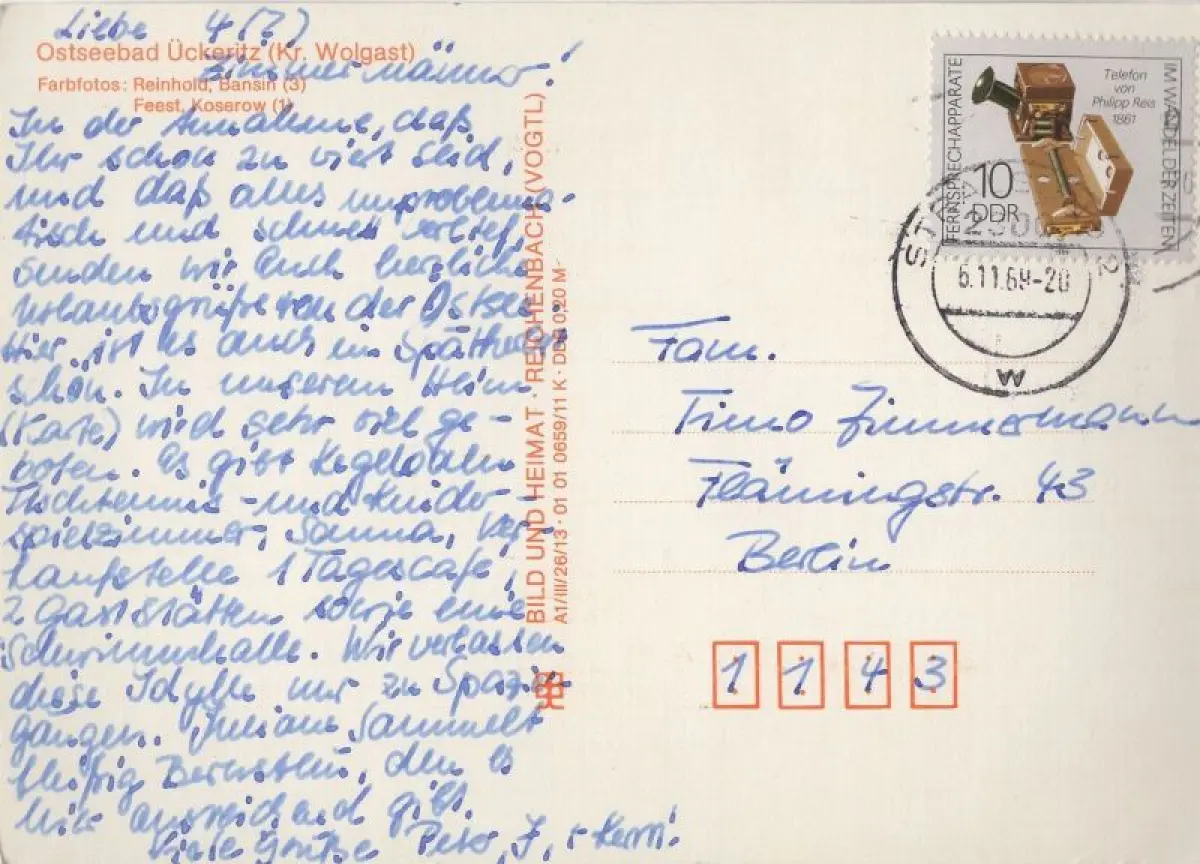 Liebe 4(?)
Zimmermänner!
Ostseebad Ückeritz (Kr. Wolgast)
Farbfotos: Reinhold, Bansin (3)
Feest, Koserow (1)
In der Annahme, daß
Ihr schon zu viert seid,
und daß alles unproblema-
tisch und schnell verlief,
senden wir Euch herzliche
Urlaubsgrüße von der Ostsee.
Hier ist es auch im
schön. In unserem Heim
(Karte) wird sehr viel ge-
boten. Es gibt Kegelbahn
Tischtennis- und Kinder-
spielzimmer, Sauna, Ver-
kaufstelle 1 Tagescafé,
2 Gaststätten sowie eine
Schwimmhalle. Wir verlassen
diese Idylle nur zu Spazier-
gängen. Juliane sammelt
fleißig Bernstein, den es
hier ausreichend gibt.
Viele Grüße Peter, J,
BILD UND HEIMAT · REICHENBACH (VOGTL)
A1/III/26/13 · 01 01 0659/11 K · DDR 0,20 M
FERNSPRECHAPPARATE
IM WANDEL DER ZEITEN
Telefon
von
Philipp Reis
1861
10
DDR
6.11.89-20
Fam.
Timo Zimmermann
Flämingstr. 43
Berlin
1 1 4 3